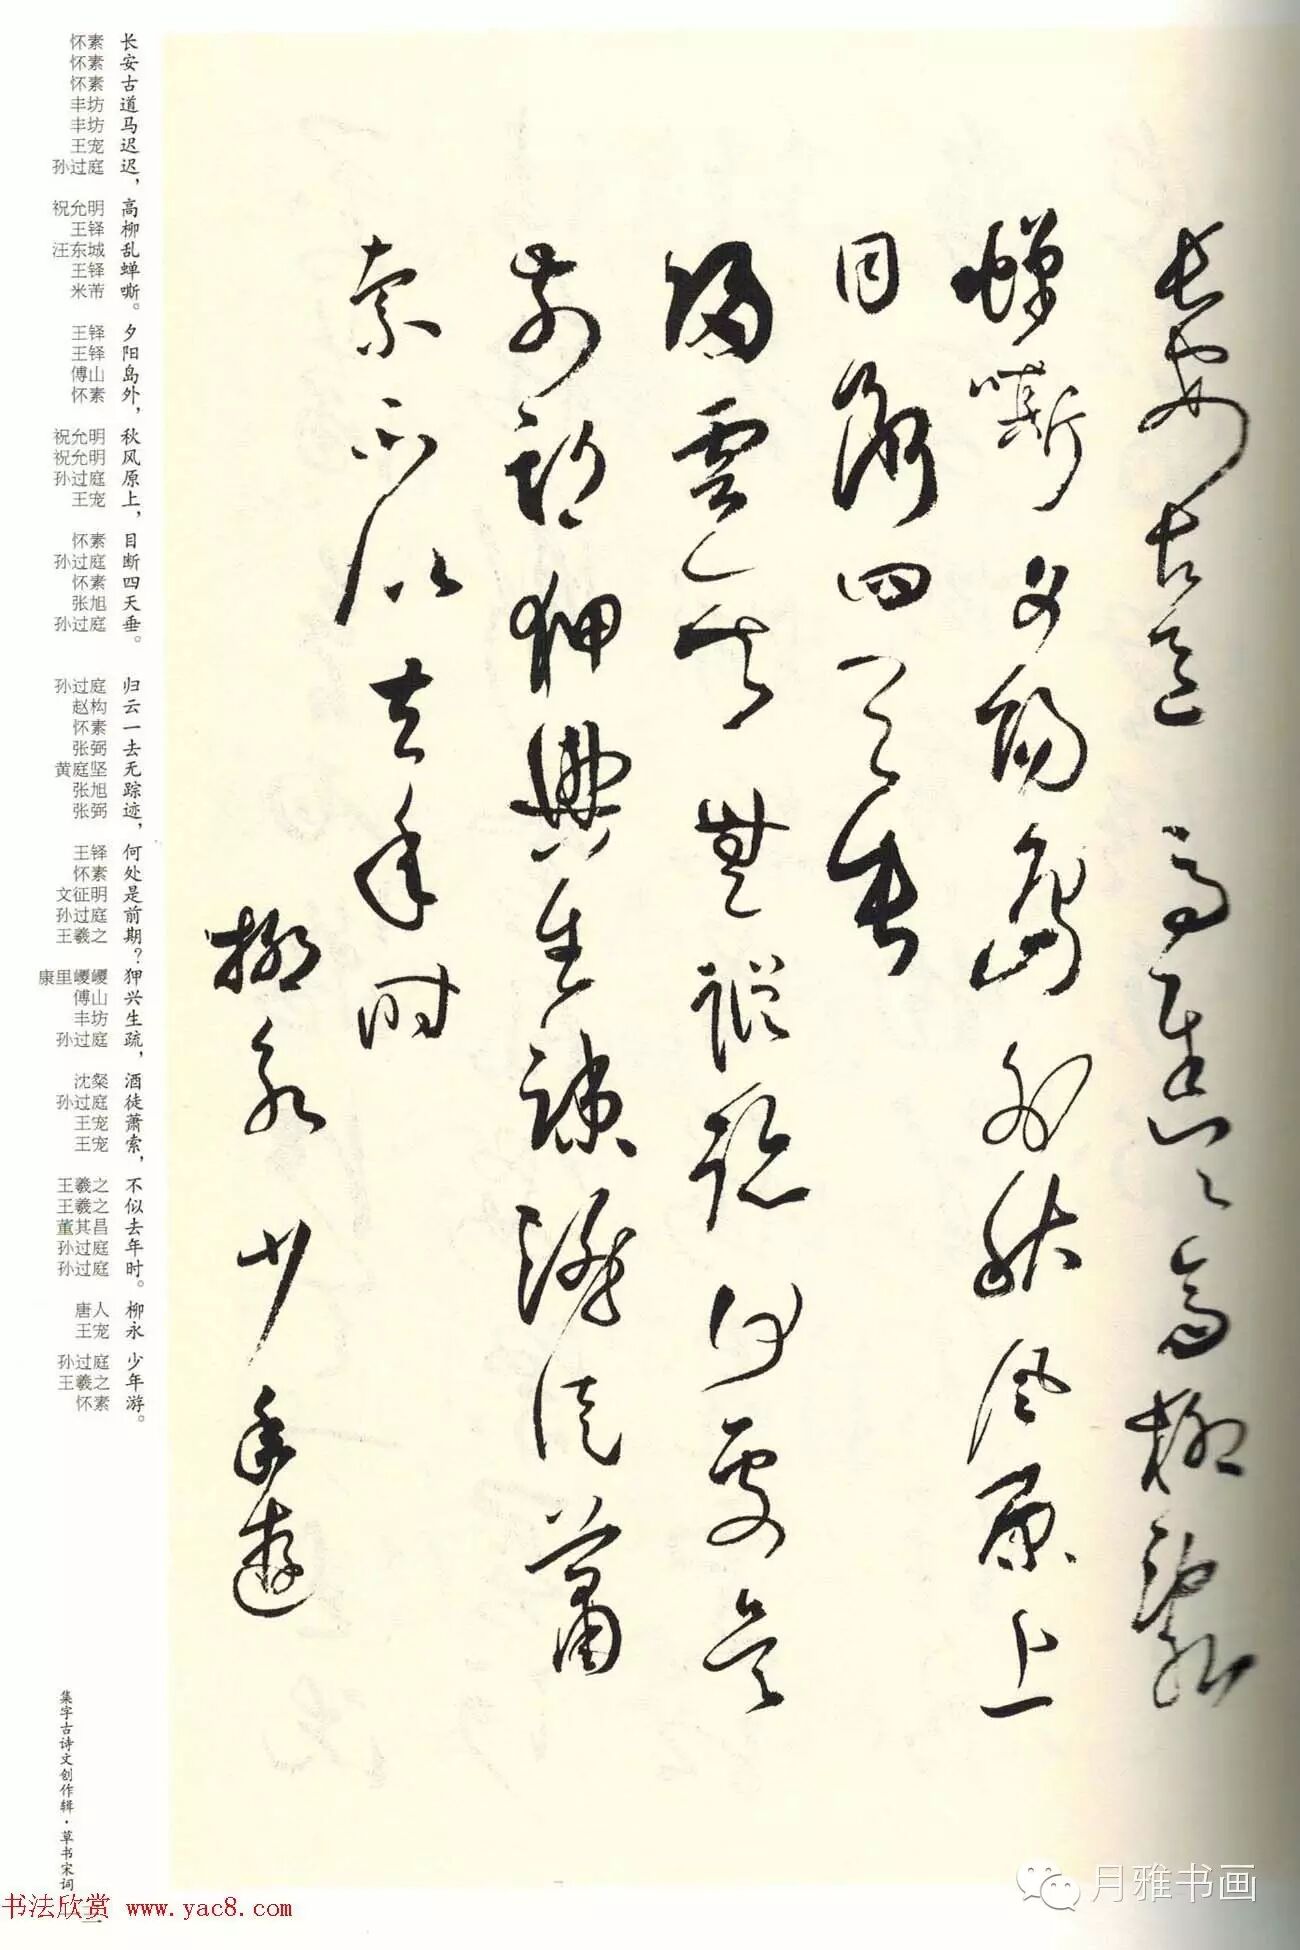 長安古道馬遲遲高柳亂
蟬嘶夕陽島外秋風原上
目斷四天垂
歸雲一去無蹤迹何處是
前期狎興生疎酒徒蕭
索不似去年時
柳永少年遊
长安古道马迟迟，高柳乱蝉嘶。夕阳岛外，秋风原上，目断四天垂。 归云一去无踪迹，何处是前期？狎兴生疏，酒徒萧索，不似去年时。柳永 少年游。
怀素 怀素 怀素 丰坊 丰坊 王宠 孙过庭 祝允明 王铎 汪东城 王铎 米芾 王铎 王铎 傅山 怀素 祝允明 祝允明 孙过庭 王宠 怀素 孙过庭 怀素 张旭 孙过庭 孙过庭 赵构 怀素 张弼 黄庭坚 张旭 张弼 王铎 怀素 文征明 孙过庭 王羲之 康里巎巎 傅山 丰坊 孙过庭 沈粲 孙过庭 王宠 王宠 王羲之 王羲之 董其昌 孙过庭 孙过庭 唐人 王宠 孙过庭 王羲之 怀素
集字古诗文创作辑·草书宋词
书法欣赏 www.yac8.com
月雅书画